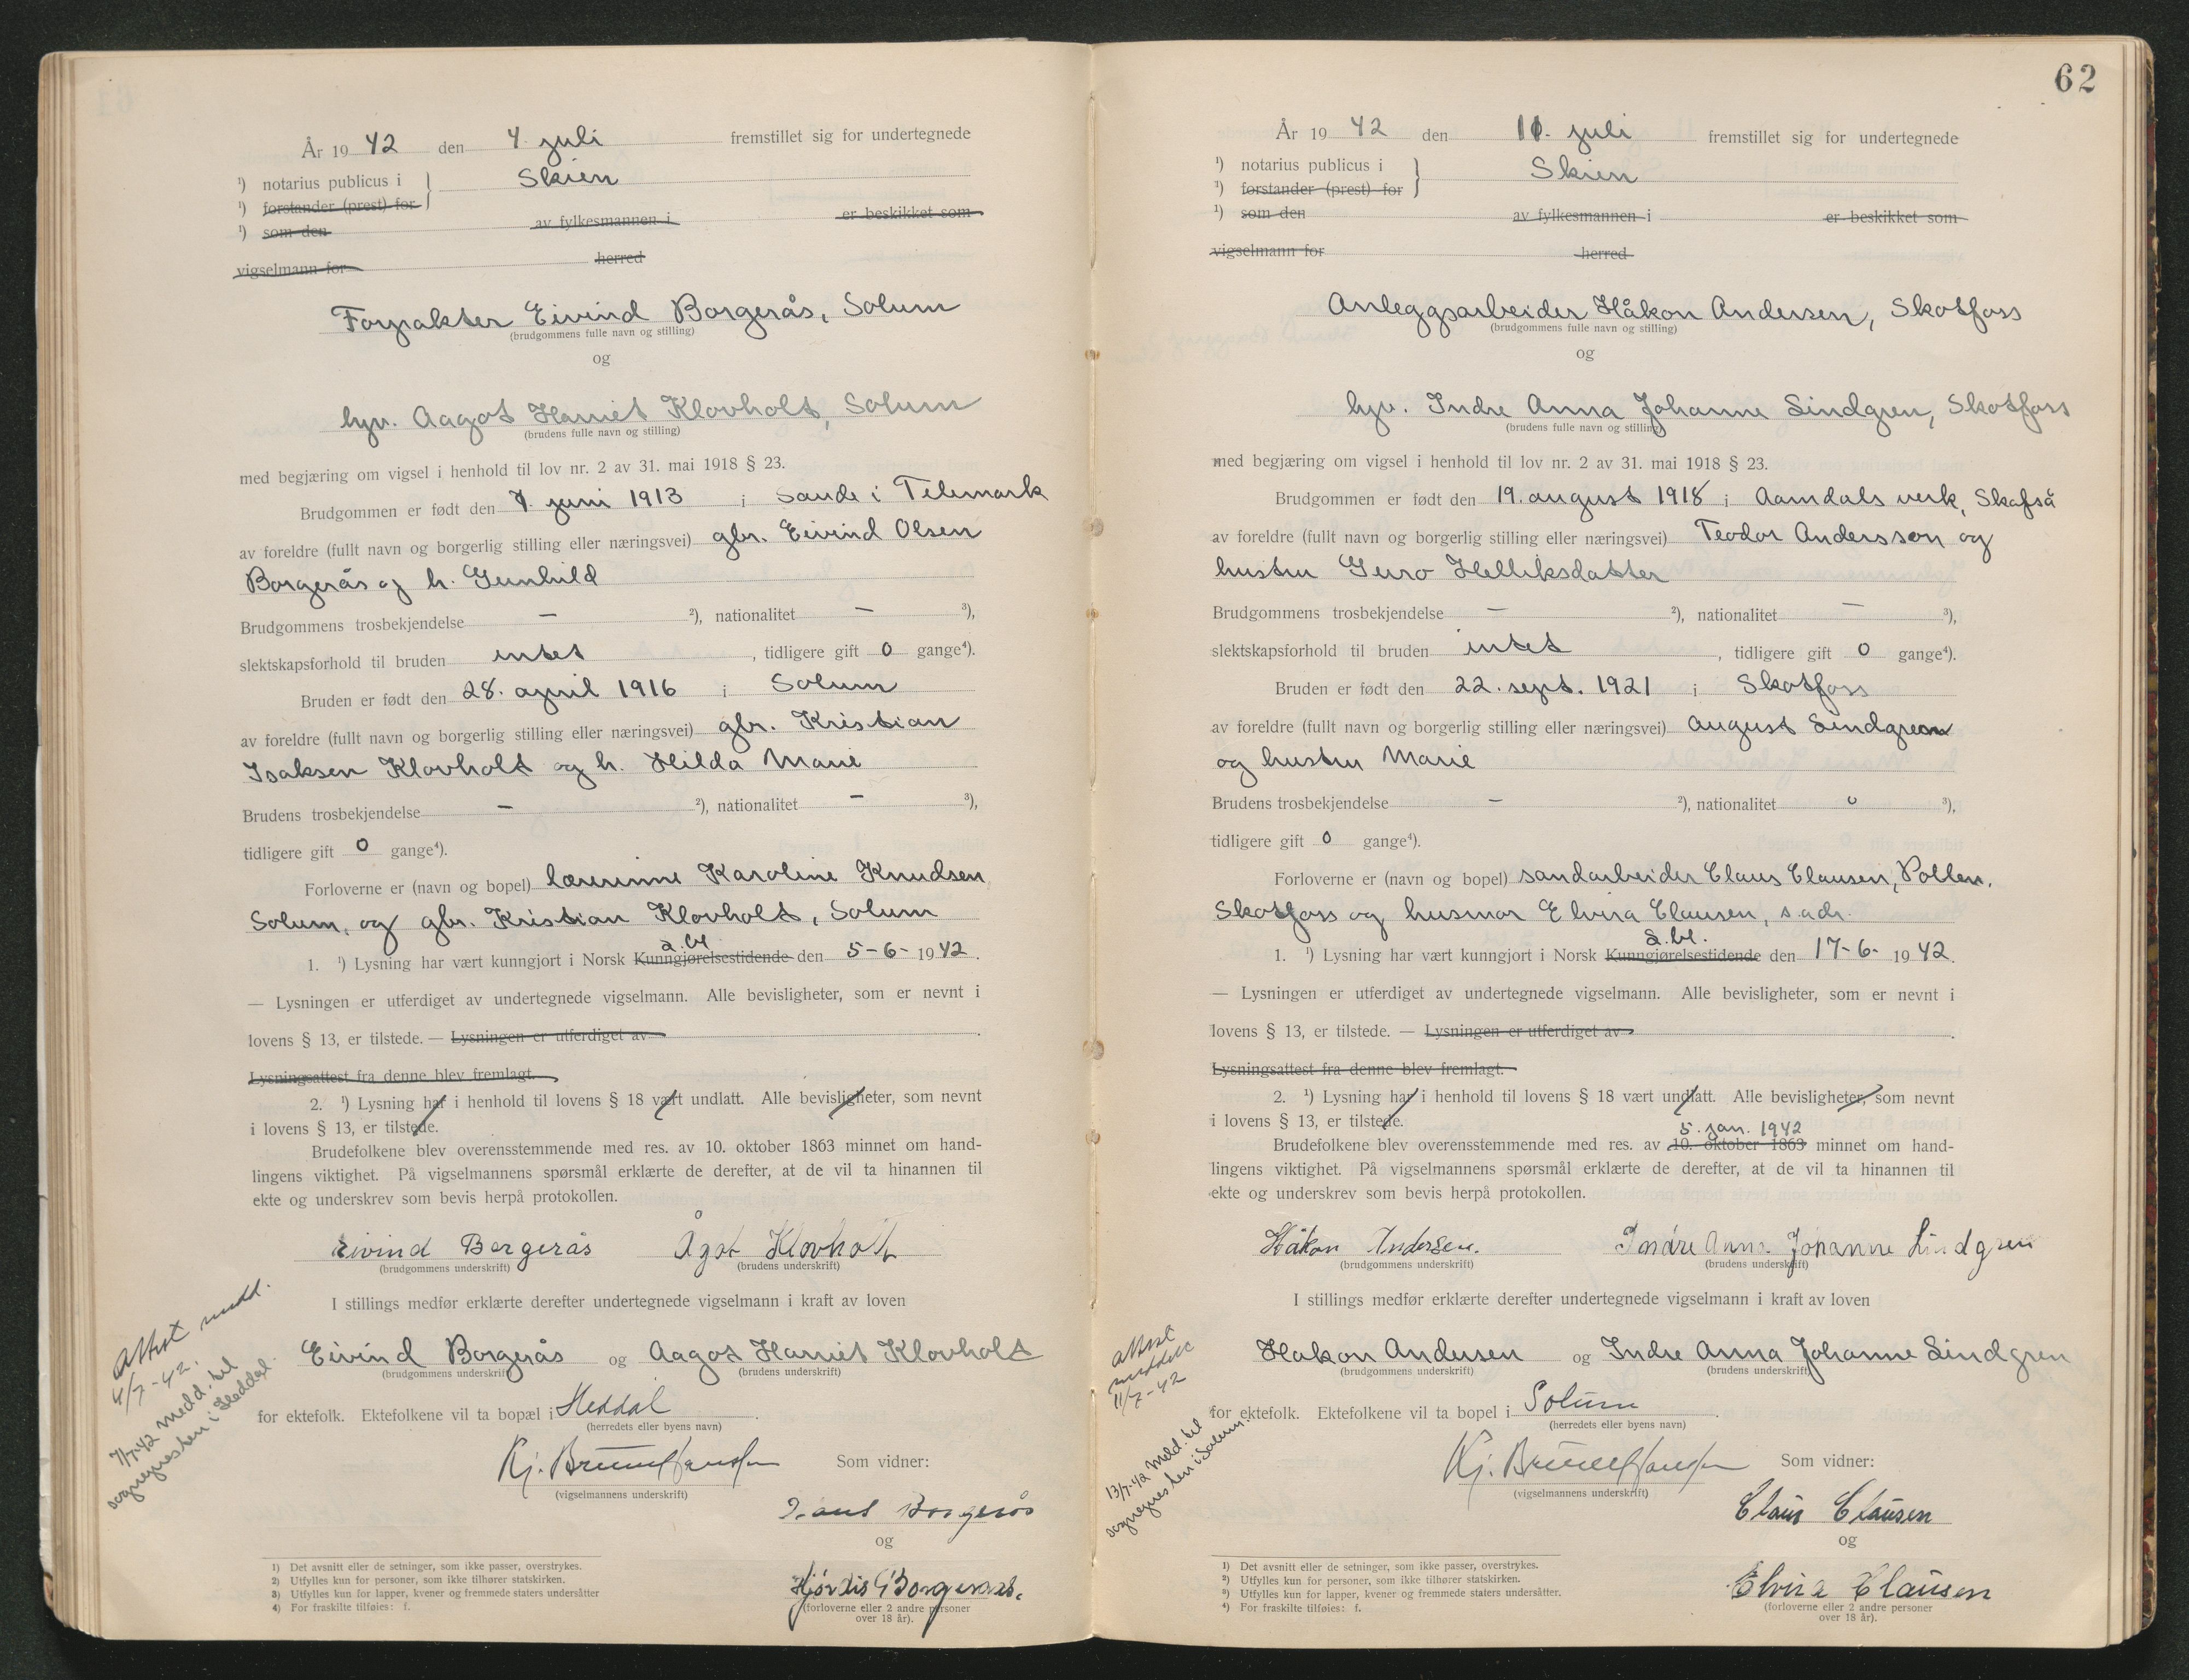 År 19 42 den 4. juli fremstillet sig for undertegnede
¹) notarius publicus i } Skien
¹) forstander (prest) for
¹) som den av fylkesmannen i er beskikket som
vigselmann for herred
Forpakter Eivind Borgerås, Solum
(brudgommens fulle navn og stilling)
og
hyr. Aagot Harriet Klovholt, Solum
(brudens fulle navn og stilling)
med begjæring om vigsel i henhold til lov nr. 2 av 31. mai 1918 § 23.
Brudgommen er født den 7. juni 1913 i Saude i Telemark
av foreldre (fullt navn og borgerlig stilling eller næringsvei) gbr. Eivind Olsen
Borgerås og h. Gunhild
Brudgommens trosbekjendelse — ²), nationalitet — ³),
slektskapsforhold til bruden intet, tidligere gift 0 gange⁴).
Bruden er født den 28. april 1916 i Solum
av foreldre (fullt navn og borgerlig stilling eller næringsvei) gbr. Kristian
Isaksen Klovholt og h. Hilda Marie
Brudens trosbekjendelse — ²), nationalitet — ³),
tidligere gift 0 gange⁴).
Forloverne er (navn og bopel) lærerinne Karoline Knudsen,
Solum, og gbr. Kristian Klovholt, Solum
a. bl
1. ¹) Lysning har vært kunngjort i Norsk Kunngjørelsestidende den 5-6- 1942.
— Lysningen er utferdiget av undertegnede vigselmann. Alle bevisligheter, som er nevnt i
lovens § 13, er tilstede. — Lysningen er utferdiget av
Lysningsattest fra denne blev fremlagt.
2. ¹) Lysning har i henhold til lovens § 18 vært undlatt. Alle bevisligheter, som nevnt
i lovens § 13, er tilstede.
Brudefolkene blev overensstemmende med res. av 10. oktober 1863 minnet om hand-
lingens viktighet. På vigselmannens spørsmål erklærte de derefter, at de vil ta hinannen til
ekte og underskrev som bevis herpå protokollen.
Eivind Borgerås Ågot Klovholt
(brudgommens underskrift) (brudens underskrift)
I stillings medfør erklærte derefter undertegnede vigselmann i kraft av loven
Eivind Borgerås og Aagot Harriet Klovholt
(brudgommens underskrift) (brudens underskrift)
for ektefolk. Ektefolkene vil ta bopæl i Heddal.
(herredets eller byens navn)
Kj. Bruun Hansen Som vidner:
(vigselmannens underskrift)
Borgerås
og
Hjørdis Borgeraas.
(forloverne eller 2 andre personer
over 18 år).
Attest medd.
4/7-42.
7/7-42 Medd. til
sognepresten i Heddal.
1) Det avsnitt eller de setninger, som ikke passer, overstrykes.
2) Utfylles kun for personer, som ikke tilhører statskirken.
3) Utfylles kun for lapper, kvener og fremmede staters undersåtter
4) For fraskilte tilføies: f.
62
År 19 42 den 11. juli fremstillet sig for undertegnede
¹) notarius publicus i } Skien
¹) forstander (prest) for
¹) som den av fylkesmannen i er beskikket som
vigselmann for herred
Anleggsarbeider Håkon Andersen, Skotfoss
(brudgommens fulle navn og stilling)
og
hyr. Indre Anna Johanne Lindgren, Skotfoss
(brudens fulle navn og stilling)
med begjæring om vigsel i henhold til lov nr. 2 av 31. mai 1918 § 23.
Brudgommen er født den 19. august 1918 i Aamdals verk, Skafså
av foreldre (fullt navn og borgerlig stilling eller næringsvei) Teodor Andersson og
hustru Guro Helliksdatter
Brudgommens trosbekjendelse — ²), nationalitet — ³),
slektskapsforhold til bruden intet, tidligere gift 0 gange⁴).
Bruden er født den 22. sept. 1921 i Skotfoss
av foreldre (fullt navn og borgerlig stilling eller næringsvei) August Lindgren
og hustru Marie
Brudens trosbekjendelse — ²), nationalitet ³),
tidligere gift 0 gange⁴).
Forloverne er (navn og bopel) sandarbeider Claus Clausen, Pollen,
Skotfoss og husmor Elvira Clausen, s. adr.
a. bl.
1. ¹) Lysning har vært kunngjort i Norsk Kunngjørelsestidende den 17-6- 1942.
— Lysningen er utferdiget av undertegnede vigselmann. Alle bevisligheter, som er nevnt i
lovens § 13, er tilstede. — Lysningen er utferdiget av
Lysningsattest fra denne blev fremlagt.
2. ¹) Lysning har i henhold til lovens § 18 vært undlatt. Alle bevisligheter, som nevnt
i lovens § 13, er tilstede.
5. jan. 1942
Brudefolkene blev overensstemmende med res. av 10. oktober 1863 minnet om hand-
lingens viktighet. På vigselmannens spørsmål erklærte de derefter, at de vil ta hinannen til
ekte og underskrev som bevis herpå protokollen.
Håkon Andersen. Indre Anna Johanne Lindgren
(brudgommens underskrift) (brudens underskrift)
I stillings medfør erklærte derefter undertegnede vigselmann i kraft av loven
Håkon Andersen og Indre Anna Johanne Lindgren
(brudgommens underskrift) (brudens underskrift)
for ektefolk. Ektefolkene vil ta bopel i Solum.
(herredets eller byens navn)
Kj. Bruun Hansen Som vidner:
(vigselmannens underskrift)
Claus Clausen
og
Elvira Clausen
(forloverne eller 2 andre personer
over 18 år).
Attest
meddelt
11/7-42
13/7-42 Meld. til
sognepresten i Solum.
1) Det avsnitt eller de setninger, som ikke passer, overstrykes.
2) Utfylles kun for personer, som ikke tilhører statskirken.
3) Utfylles kun for lapper, kvener og fremmede staters undersåtter.
4) For fraskilte tilføies: f.